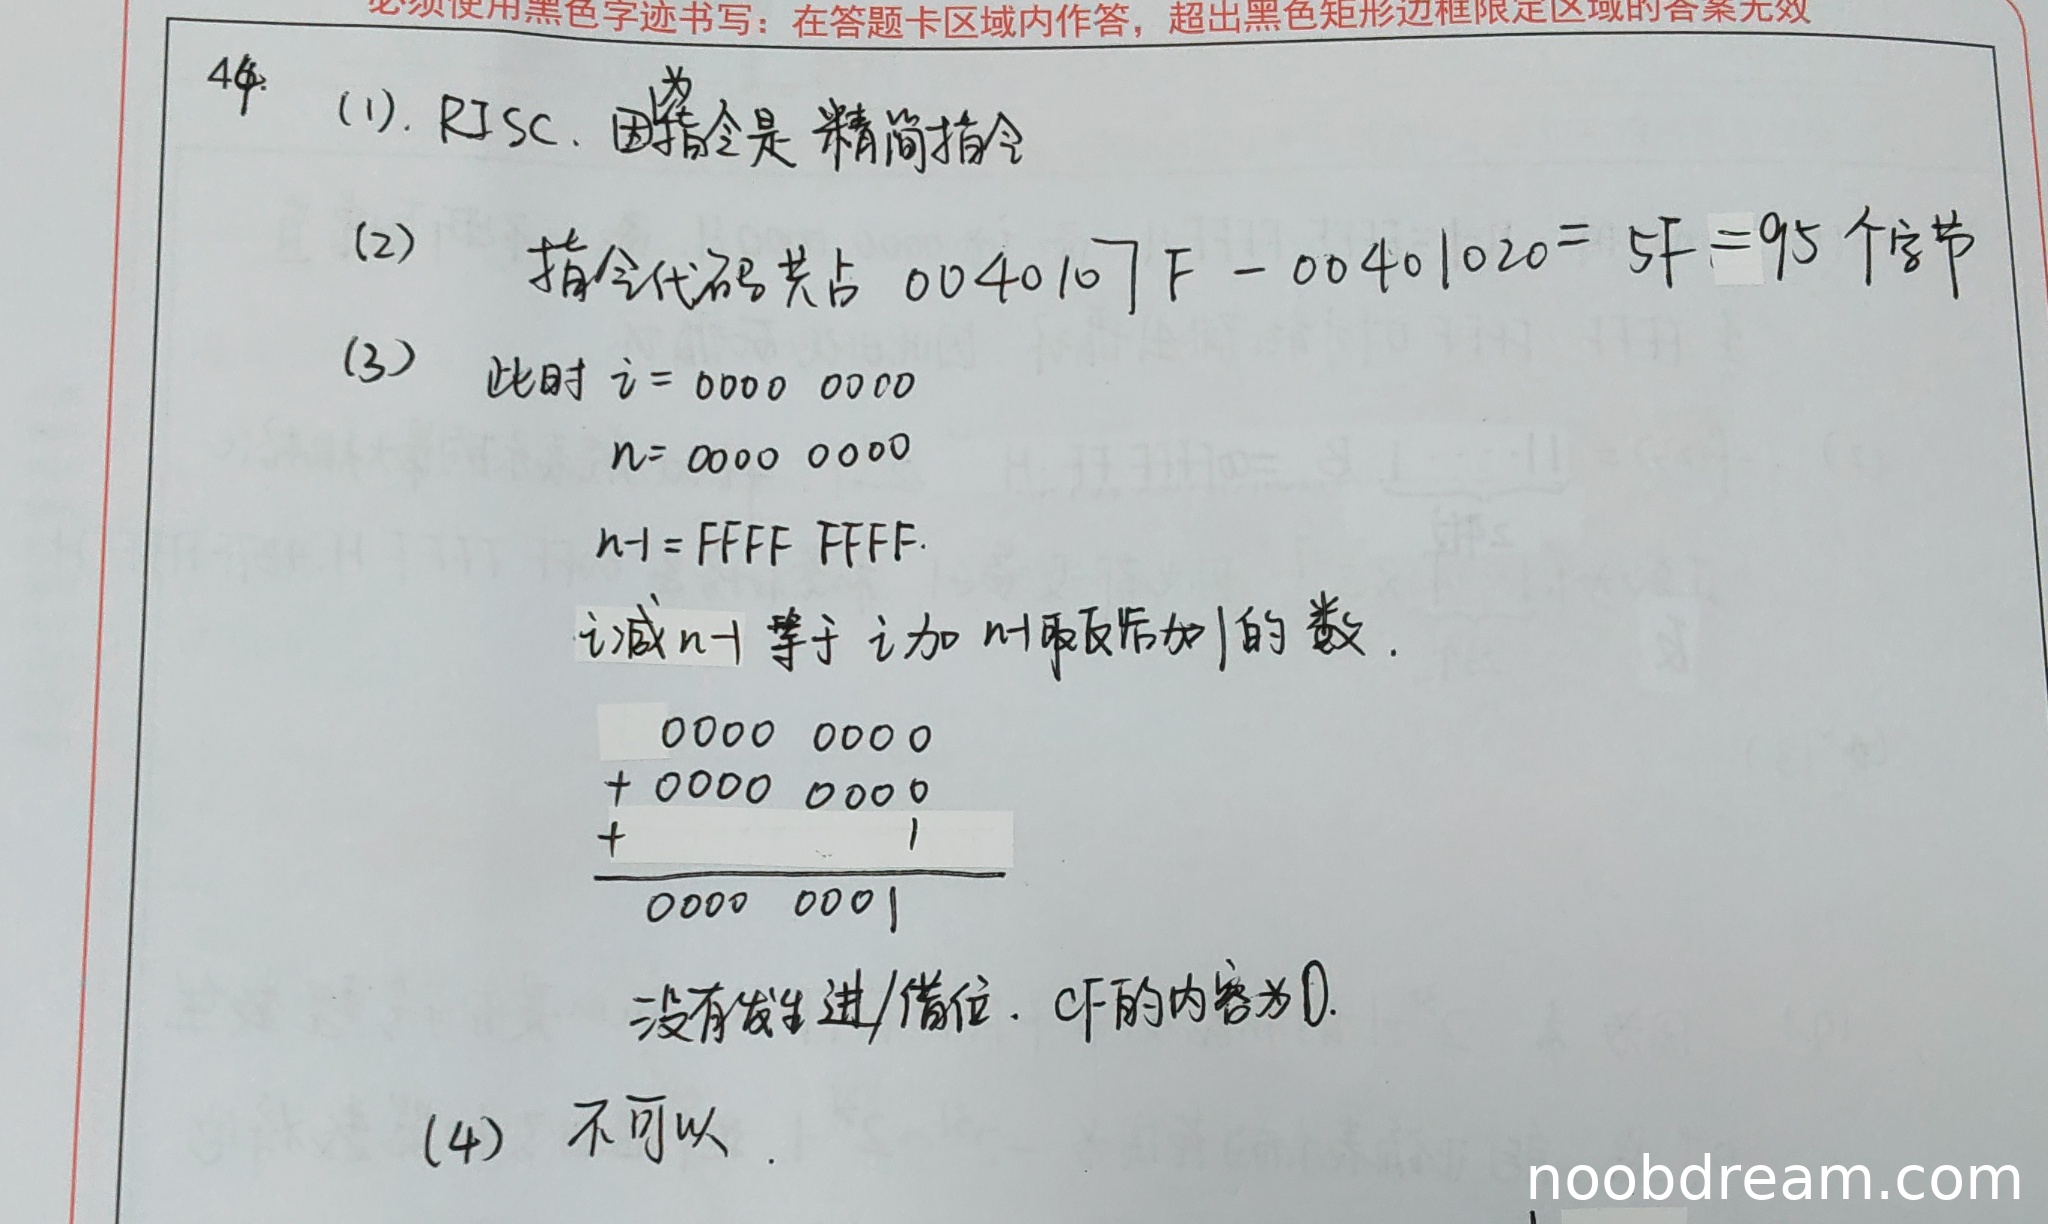 必须使用黑色字迹书写：在答题卡区域内作答，超出黑色矩形边框限定区域的答案无效
44.
(1). RISC. 因为指令是精简指令
(2) 指令代码共占 0040107F - 00401020 = 5F = 95 个字节
(3) 此时 i = 0000 0000
n = 0000 0000
n-1 = FFFF FFFF.
i减 n-1 等于 i 加 n-1取反后加1的数.
0000 0000
+ 0000 0000
+ 1
0000 0001
没有发生进/借位. CF的内容为0.
(4) 不可以.
noobdream.com